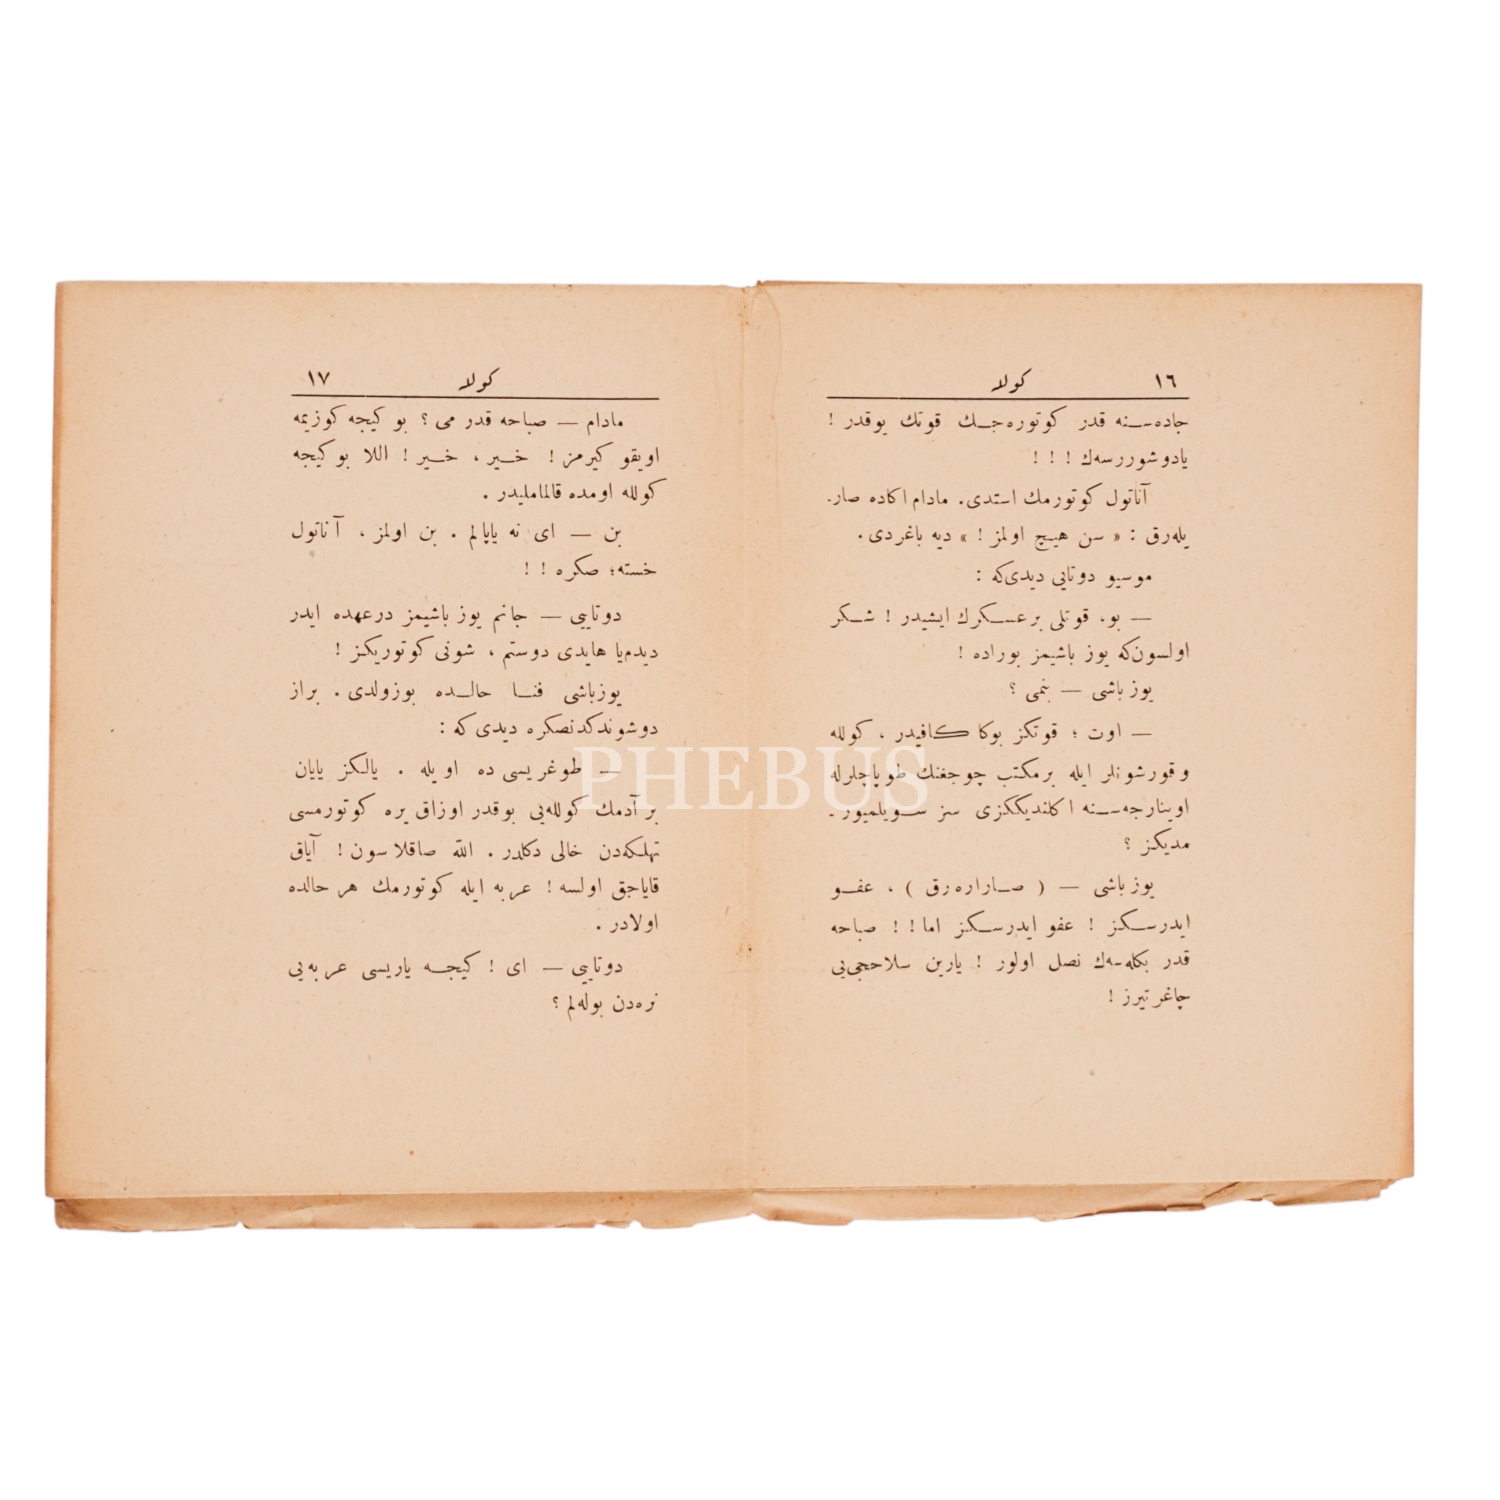 ١٦ كولله
جاده‌سنه قدر كوتوره‌جك قوتك يوقدر !
يادوشوررسه‌ك ! ! !
آناتول كوتورمك استدى. مادام اكاده صار-
يله‌رق : « سن هيچ اولمز ! » ديه باغردى.
موسيو دوتايى ديدى‌كه :
— بو، قوتلى بر عسكرك ايشيدر ! شكر
اولسون‌كه يوز باشيمز بوراده !
يوز باشى — بنمى ؟
— اوت ؛ قوتكز بوكا كافيدر ، كولله
وقورشونلر ايله بر مكتب چوجغنك طوپاچلرله
اوينارجه‌سنه اكلنديككزى سز سويلميور-
مديكز ؟
يوز باشى — ( صاراره‌رق ) ، عفو
ايدرسكز ! عفو ايدرسكز اما ! ! صباحه
قدر بكله‌سه‌ك نصل اولور ! يارين سلاحجى‌يى
چاغرتيرز !
كولله ١٧
مادام — صباحه قدر مى ؟ بو كيجه كوزيمه
اويقو كيرمز ! خير ، خير ! اللا بو كيجه
كولله اومده قالماملیدر .
بن — اى نه ياپالم . بن اولمز ، آناتول
خسته؛ صكره ! !
دوتايى — جانم يوز باشيمز درعهده ايدر
ديدم‌يا هايدى دوستم ، شونى كوتوريكز !
يوزباشى فنا حالده بوزولدى . براز
دوشوندكدنصكره ديدى كه :
— طوغريسى ده اويله . يالكز يايان
بر آدمك كولله‌يى بوقدر اوزاق يره كوتورمسى
تهلكه‌دن خالى دكلدر . الله صاقلاسون ! آياق
قاياجق اولسه ! عربه ايله كوتورمك هر حالده
اولادر .
دوتايى — اى ! كيجه ياريسى عربه‌يى
نره‌دن بوله‌لم ؟
PHEBUS